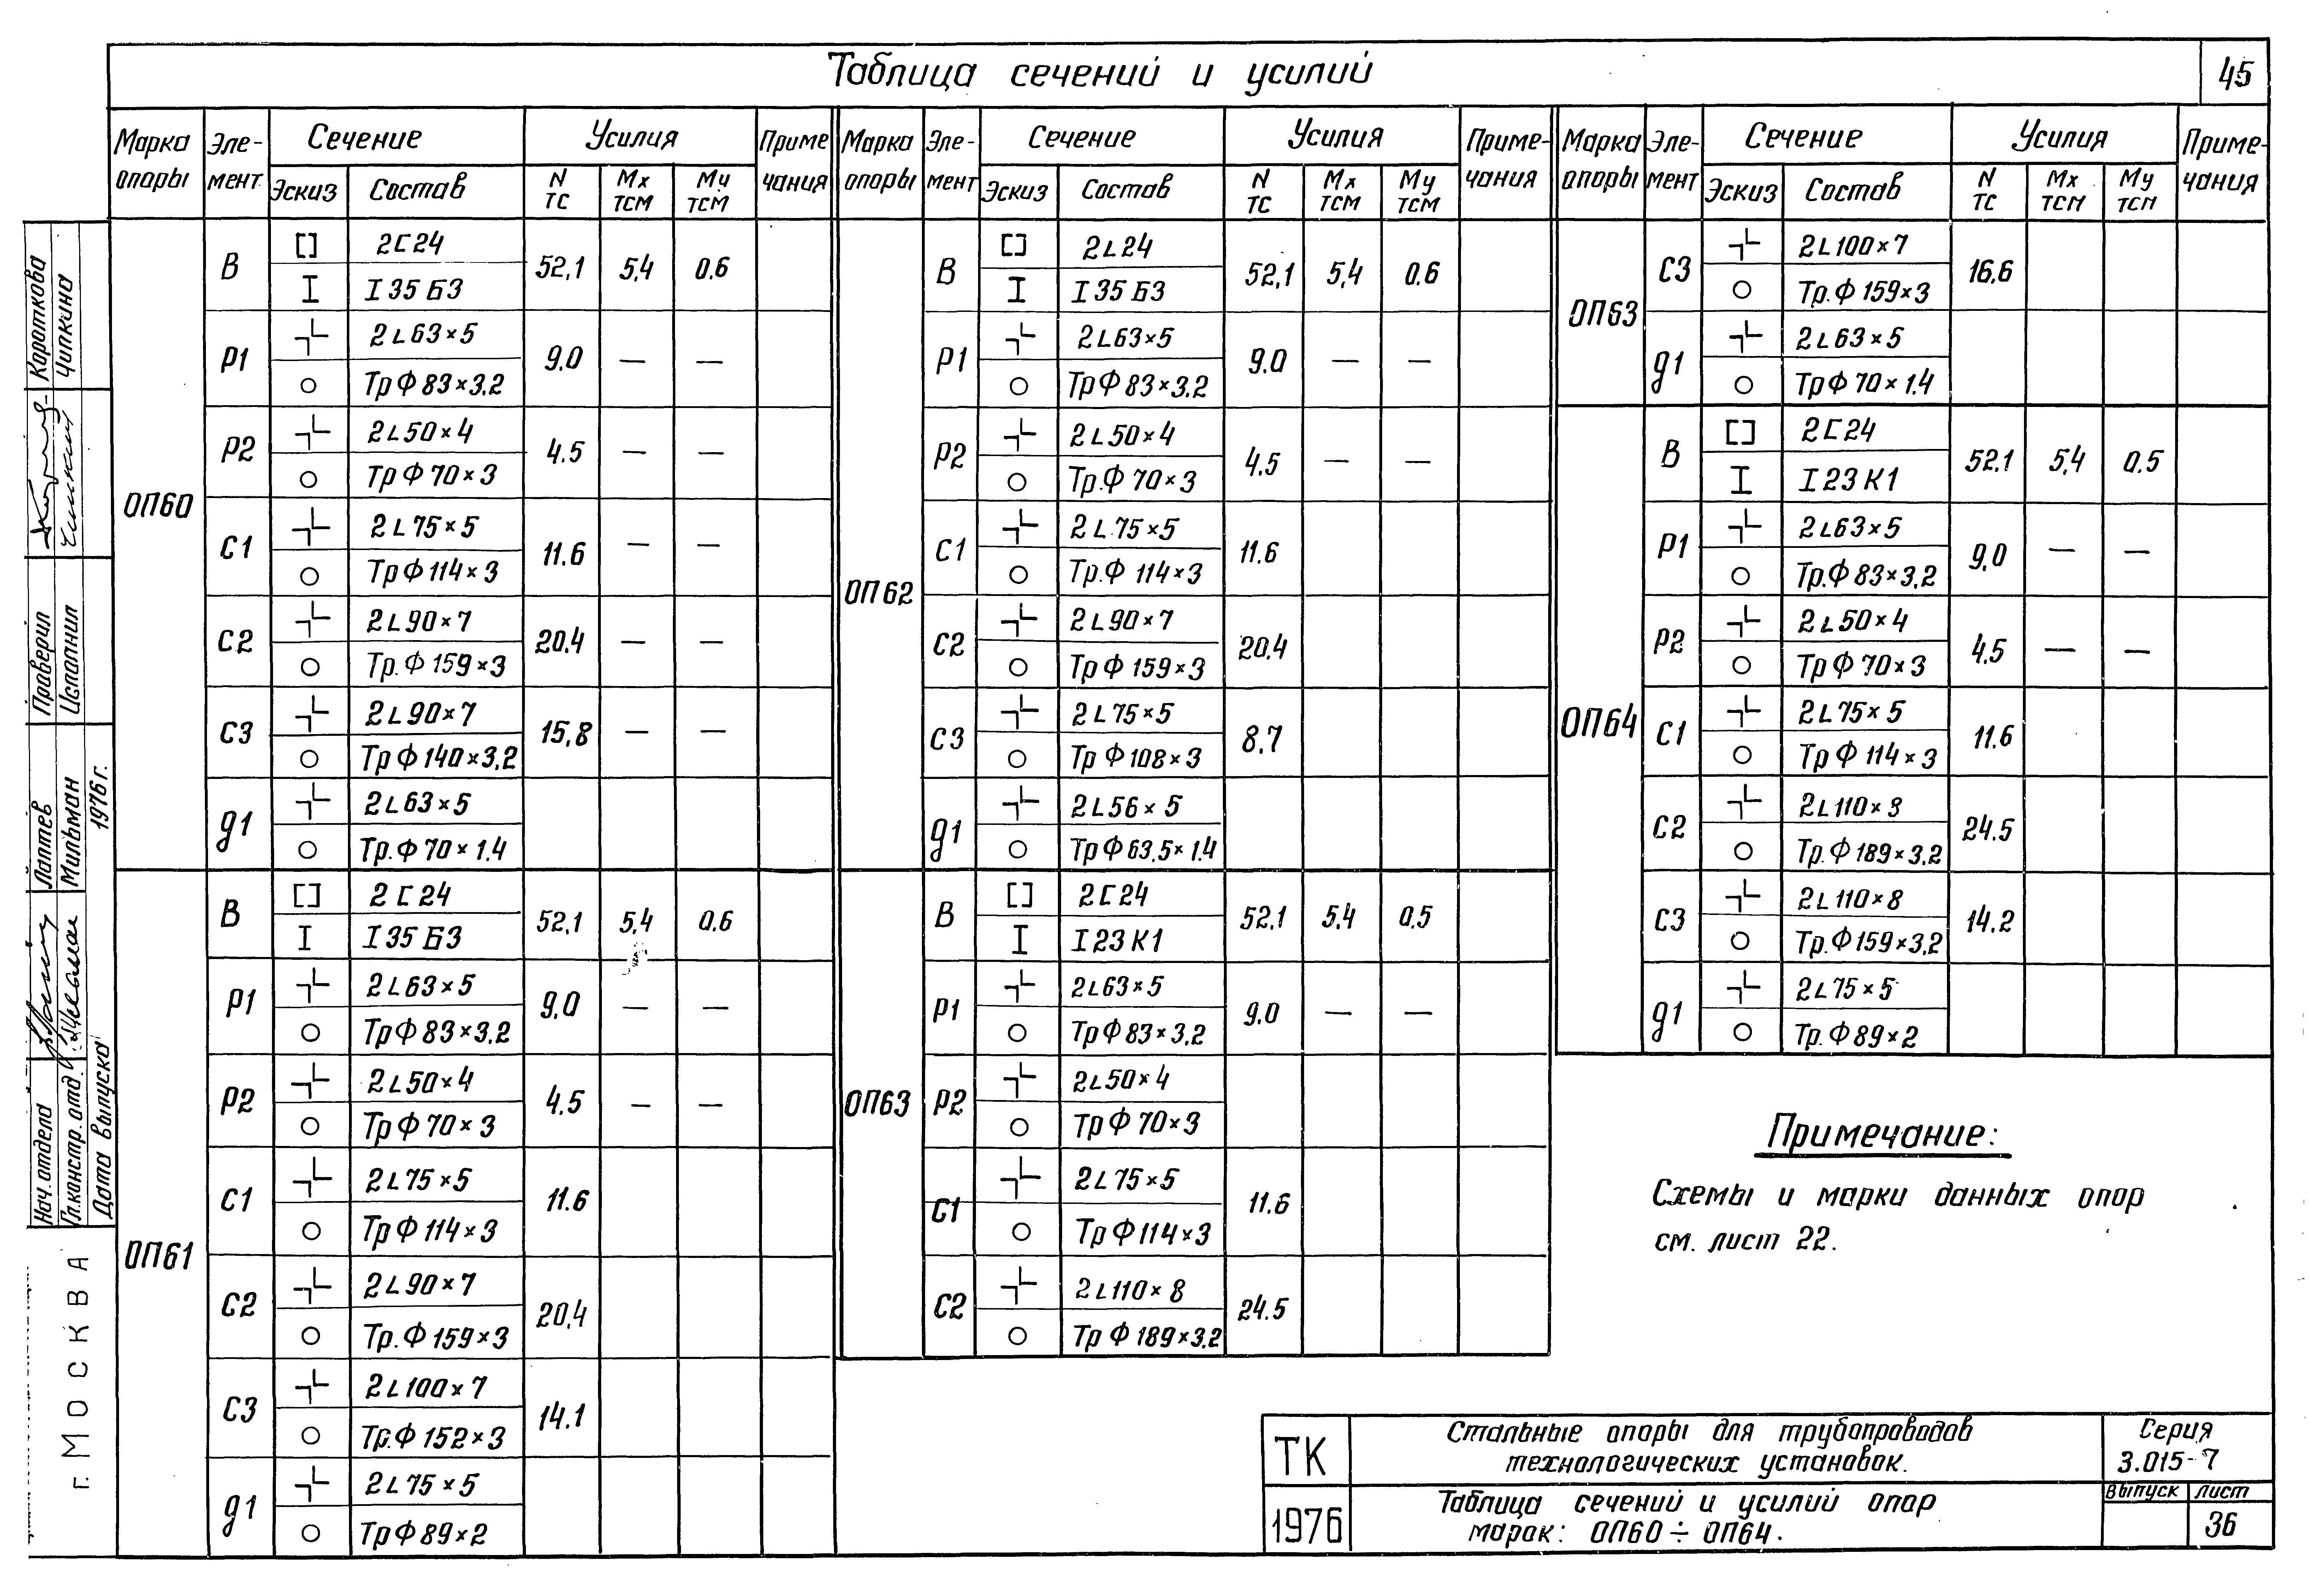 Таблица сечений и усилий
45
Марка опоры Эле-мент Сечение Усилия Примечания
Эскиз Состав N тс Мх тсм Му тсм
ОП60
В 2[24 52,1 5,4 0.6
I 35 Б3
Р1 2∟63×5 9.0 — —
Тр Ф 83×3.2
Р2 2∟50×4 4.5 — —
Тр Ф 70×3
С1 2∟75×5 11.6 — —
Тр Ф 114×3
С2 2∟90×7 20.4 — —
Тр. Ф 159×3
С3 2∟90×7 15,8 — —
Тр Ф 140×3,2
д1 2∟63×5
Тр. Ф 70×1.4
ОП61
В 2[24 52,1 5,4 0,6
I 35 Б3
Р1 2∟63×5 9,0 — —
Тр Ф 83×3.2
Р2 2∟50×4 4.5 — —
Тр Ф 70×3
С1 2∟75×5 11.6
Тр Ф 114×3
С2 2∟90×7 20,4
Тр. Ф 159×3
С3 2∟100×7 14.1
Тр. Ф 152×3
д1 2∟75×5
Тр Ф 89×2
Марка опоры Эле-мент Сечение Усилия Приме-чания
Эскиз Состав N тс Мх тсм Му тсм
ОП62
В 2∟24 52,1 5,4 0.6
I 35 Б3
Р1 2∟63×5 9.0 — —
Тр Ф 83×3.2
Р2 2∟50×4 4,5 — —
Тр. Ф 70×3
С1 2∟75×5 11.6
Тр. Ф 114×3
С2 2∟90×7 20,4
Тр Ф 159×3
С3 2∟75×5 8,7
Тр Ф 108×3
д1 2∟56×5
Тр Ф 63,5×1.4
ОП63
В 2[24 52,1 5,4 0,5
I 23 К1
Р1 2∟63×5 9.0 — —
Тр Ф 83×3,2
Р2 2∟50×4
Тр Ф 70×3
С1 2∟75×5 11.6
Тр Ф 114×3
С2 2∟110×8 24.5
Тр Ф 189×3.2
Марка опоры Эле-мент Сечение Усилия Приме-чания
Эскиз Состав N тс Мх тсм Му тсм
ОП63
С3 2∟100×7 16,6
Тр. Ф 159×3
д1 2∟63×5
Тр Ф 70×1.4
ОП64
В 2[24 52.1 5,4 0,5
I 23 К1
Р1 2∟63×5 9,0 — —
Тр. Ф 83×3,2
Р2 2∟50×4 4.5 — —
Тр Ф 70×3
С1 2∟75×5 11.6
Тр Ф 114×3
С2 2∟110×8 24.5
Тр. Ф 189×3.2
С3 2∟110×8 14.2
Тр. Ф 159×3,2
д1 2∟75×5
Тр. Ф 89×2
Примечание:
Схемы и марки данных опор
см. лист 22.
ТК
1976
Стальные опоры для трубопроводов
технологических установок.
Серия
3.015-7
Таблица сечений и усилий опор
марок: ОП60 ÷ ОП64.
Выпуск Лист
36
Нач. отдела Лаптев Проверил Короткова
Гл. констр. отд. Мильман Исполнил Чипкина
Дата выпуска 1976 г.
г. МОСКВА